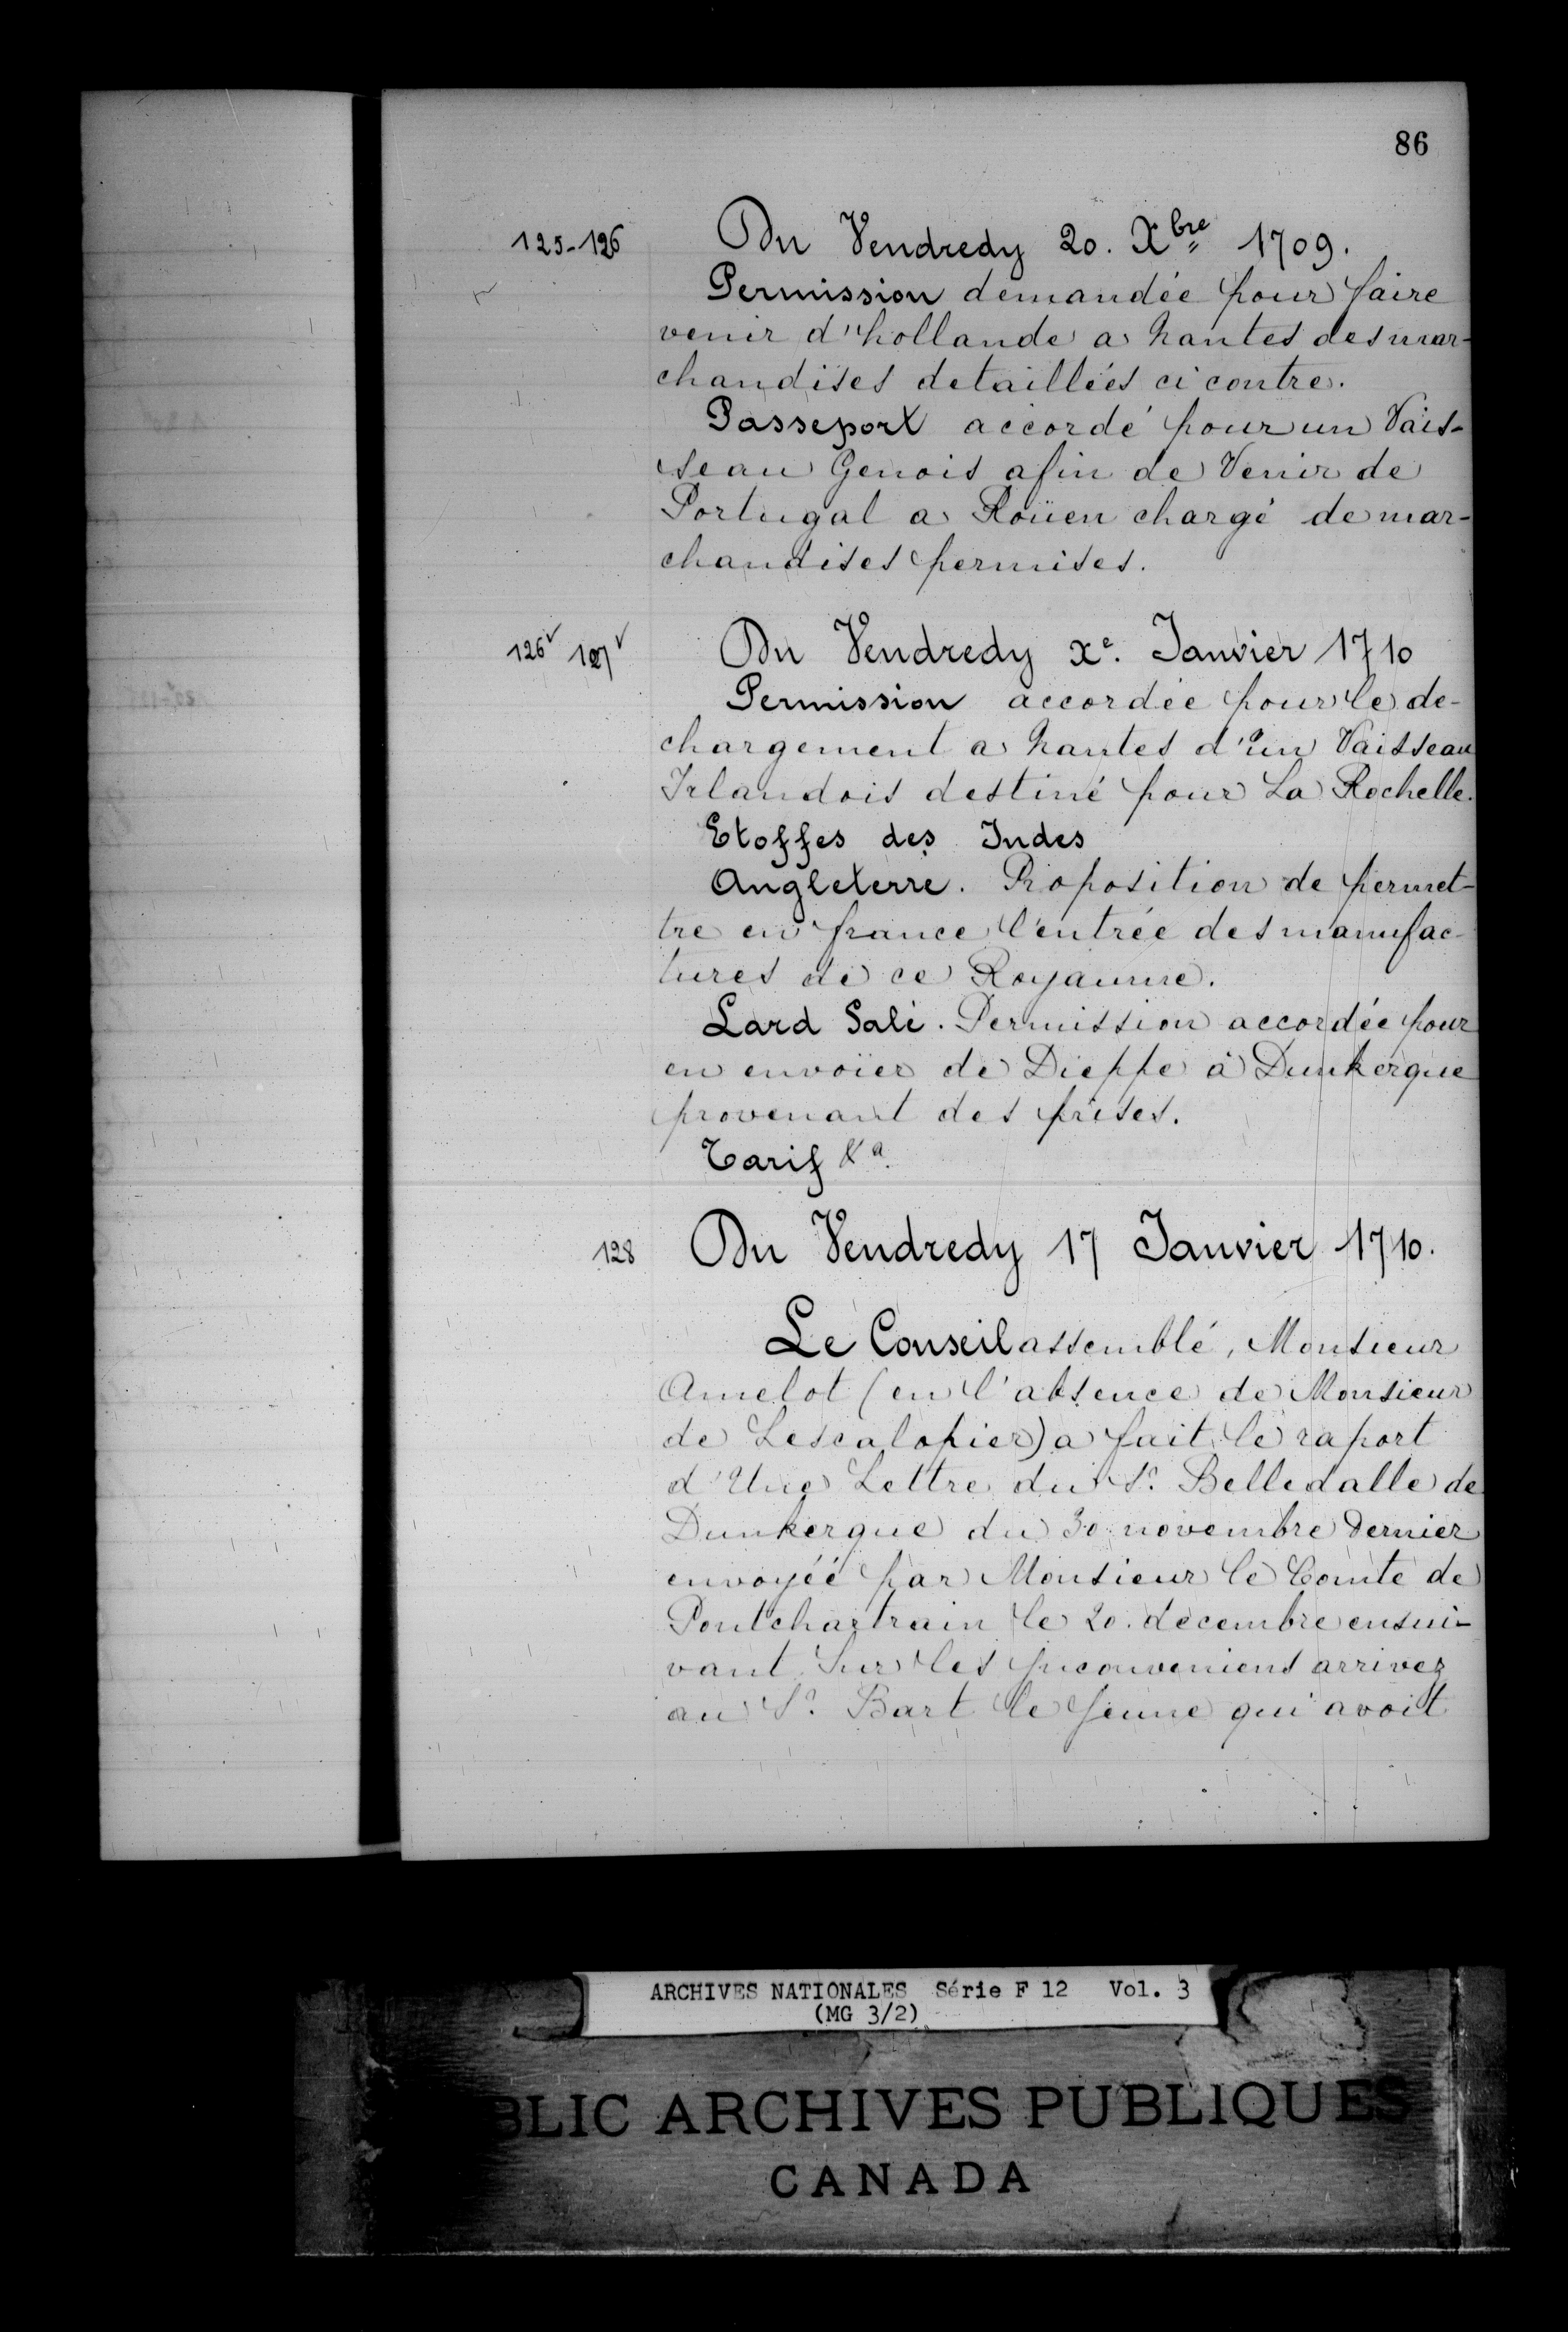 86
125-126 Du Vendredy 20. Xbre 1709.
Permission demandée pour faire
venir d'hollande a nantes des mar-
chandises detaillées ci contre.
Passeport accordé pour un Vais-
seau Genois afin de Venir de
Portugal a Roüen chargé de mar-
chandises permises.
126v 127v Du Vendredy xe. Janvier 1710
Permission accordée pour le de-
chargement a nantes d'un Vaisseau
Irlandois destiné pour La Rochelle.
Etoffes des Indes
Angleterre. Proposition de permet-
tre en france l'entrée des manufac-
tures de ce Royaume.
Lard Salé. Permission accordée pour
en envoïer de Dieppe à Dunkerque
provenant des prises.
Tarif &a.
128 Du Vendredy 17 Janvier 1710.
Le Conseil assemblé, Monsieur
Amelot (en l'absence de Monsieur
de Lescalopier) a fait le raport
d'Une Lettre du Sr. Belledalle de
Dunkerque du 30 novembre dernier
envoyéé par Monsieur le Comte de
Pontchartrain le 20. decembre ensui-
vant Sur les inconveniens arrivez
au Sr. Bart le Jeune qui avoit
ARCHIVES NATIONALES Série F 12 Vol. 3
(MG 3/2)
BLIC ARCHIVES PUBLIQUES
CANADA